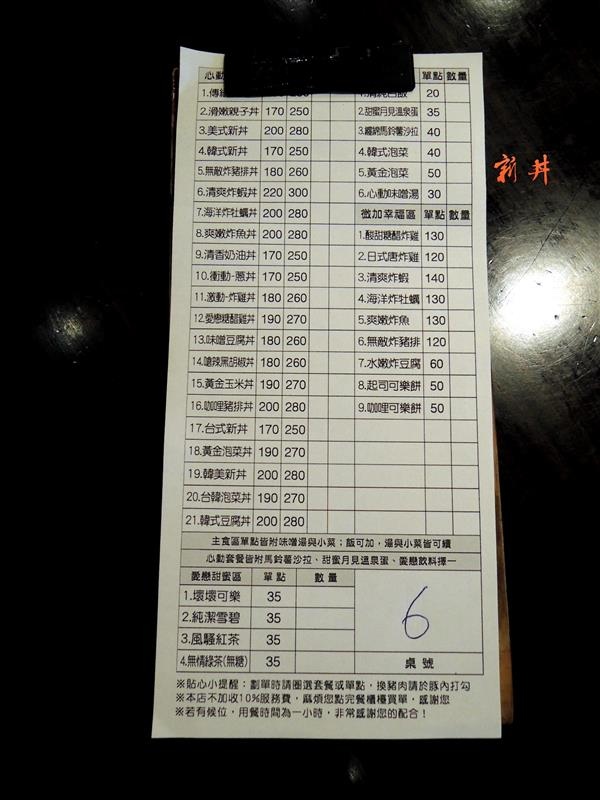 心動 單點 數量
1.傳統
2.滑嫩親子丼 170 250
3.美式新丼 200 280
4.韓式新丼 170 250
5.無敵炸豬排丼 180 260
6.清爽炸蝦丼 220 300
7.海洋炸牡蠣丼 200 280
8.爽嫩炸魚丼 200 280
9.清香奶油丼 170 250
10.衝動-蔥丼 170 250
11.激動-炸雞丼 180 260
12.愛戀糖醋雞丼 190 270
13.味噌豆腐丼 180 260
14.嗆辣黑胡椒丼 180 260
15.黃金玉米丼 190 270
16.咖哩豬排丼 200 280
17.台式新丼 170 250
18.黃金泡菜丼 190 270
19.韓美新丼 200 280
20.台韓泡菜丼 190 270
21.韓式豆腐丼 200 280
20
2.甜蜜月見溫泉蛋 35
3.纏綿馬鈴薯沙拉 40
4.韓式泡菜 40
5.黃金泡菜 50
6.心動味噌湯 30
微加幸福區 單點 數量
1.酸甜糖醋炸雞 130
2.日式唐炸雞 120
3.清爽炸蝦 140
4.海洋炸牡蠣 130
5.爽嫩炸魚 130
6.無敵炸豬排 120
7.水嫩炸豆腐 60
8.起司可樂餅 50
9.咖哩可樂餅 50
新丼
主食區單點皆附味噌湯與小菜；飯可加，湯與小菜皆可續
心動套餐皆附馬鈴薯沙拉、甜蜜月見溫泉蛋、愛戀飲料擇一
愛戀甜蜜區 單點 數量
1.壞壞可樂 35
2.純潔雪碧 35
3.風騷紅茶 35
4.無情綠茶(無糖) 35
6
桌號
※貼心小提醒：劃單時請圈選套餐或單點，換豬肉請於豚內打勾
※本店不加收10%服務費，麻煩您點完餐櫃檯買單，感謝您
※若有候位，用餐時間為一小時，非常感謝您的配合！